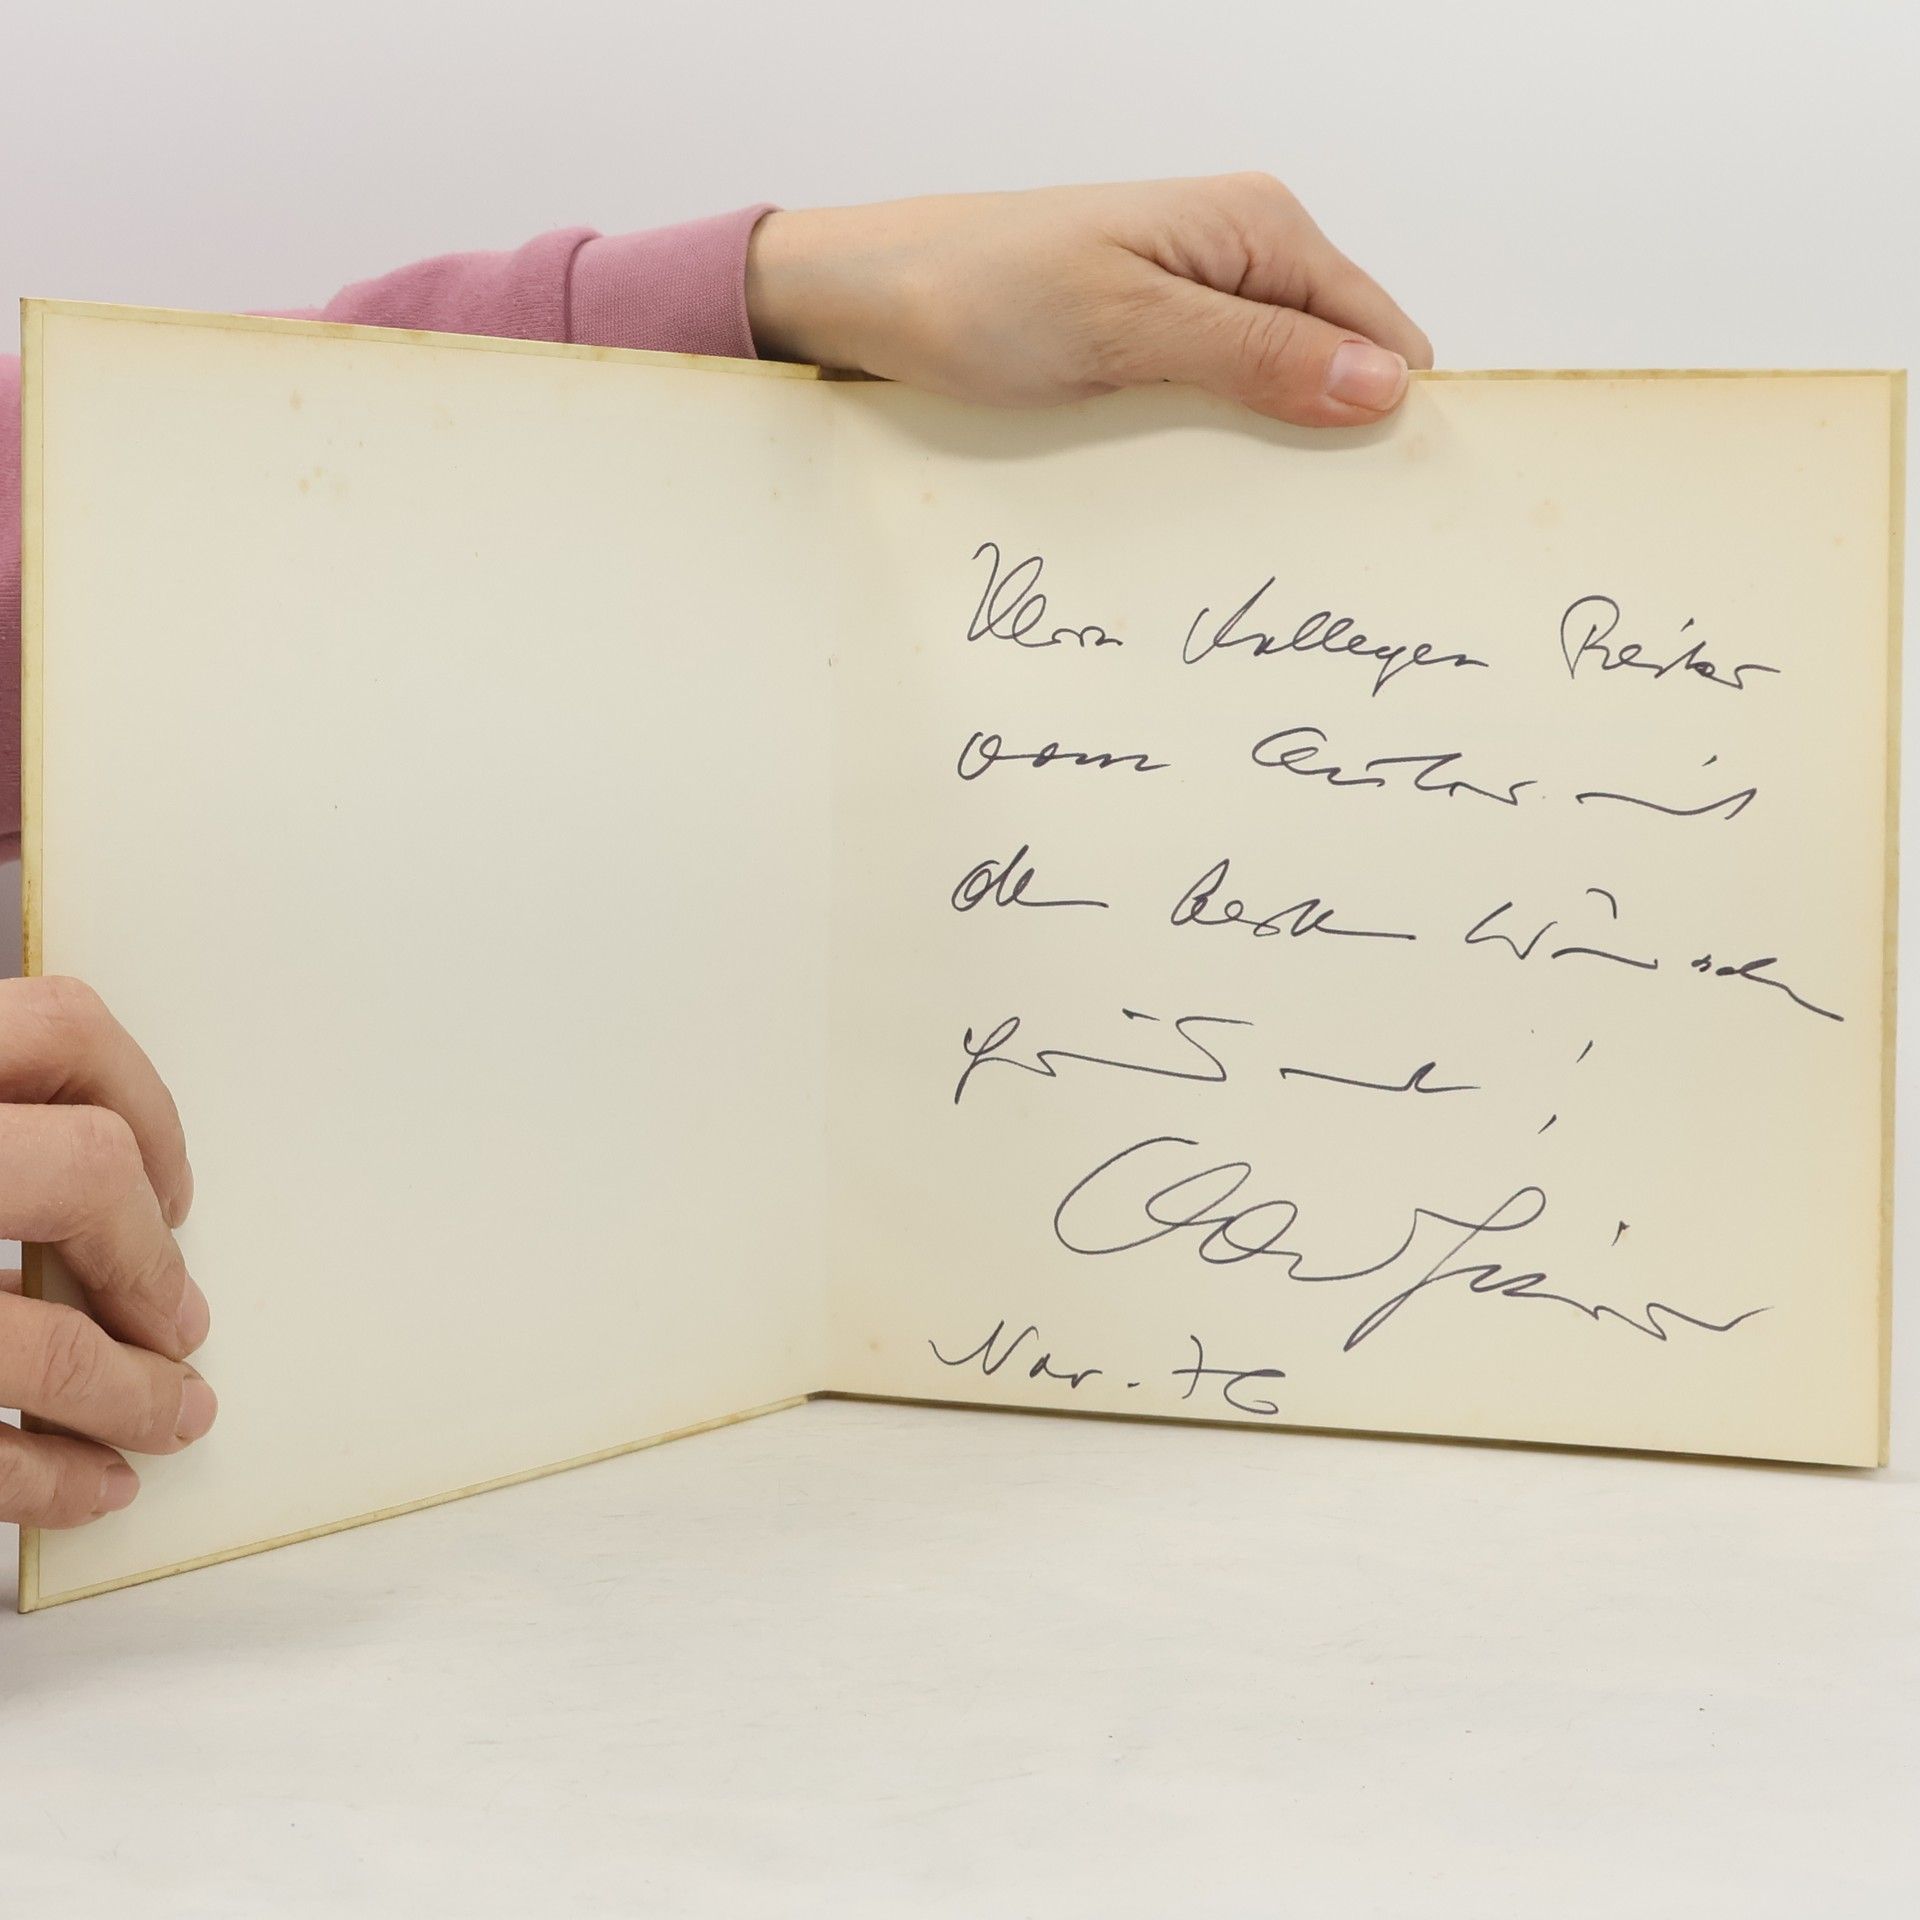 Herrn Kollegen Reiter
vom Autor mit
den besten Wünschen
Nov. 76